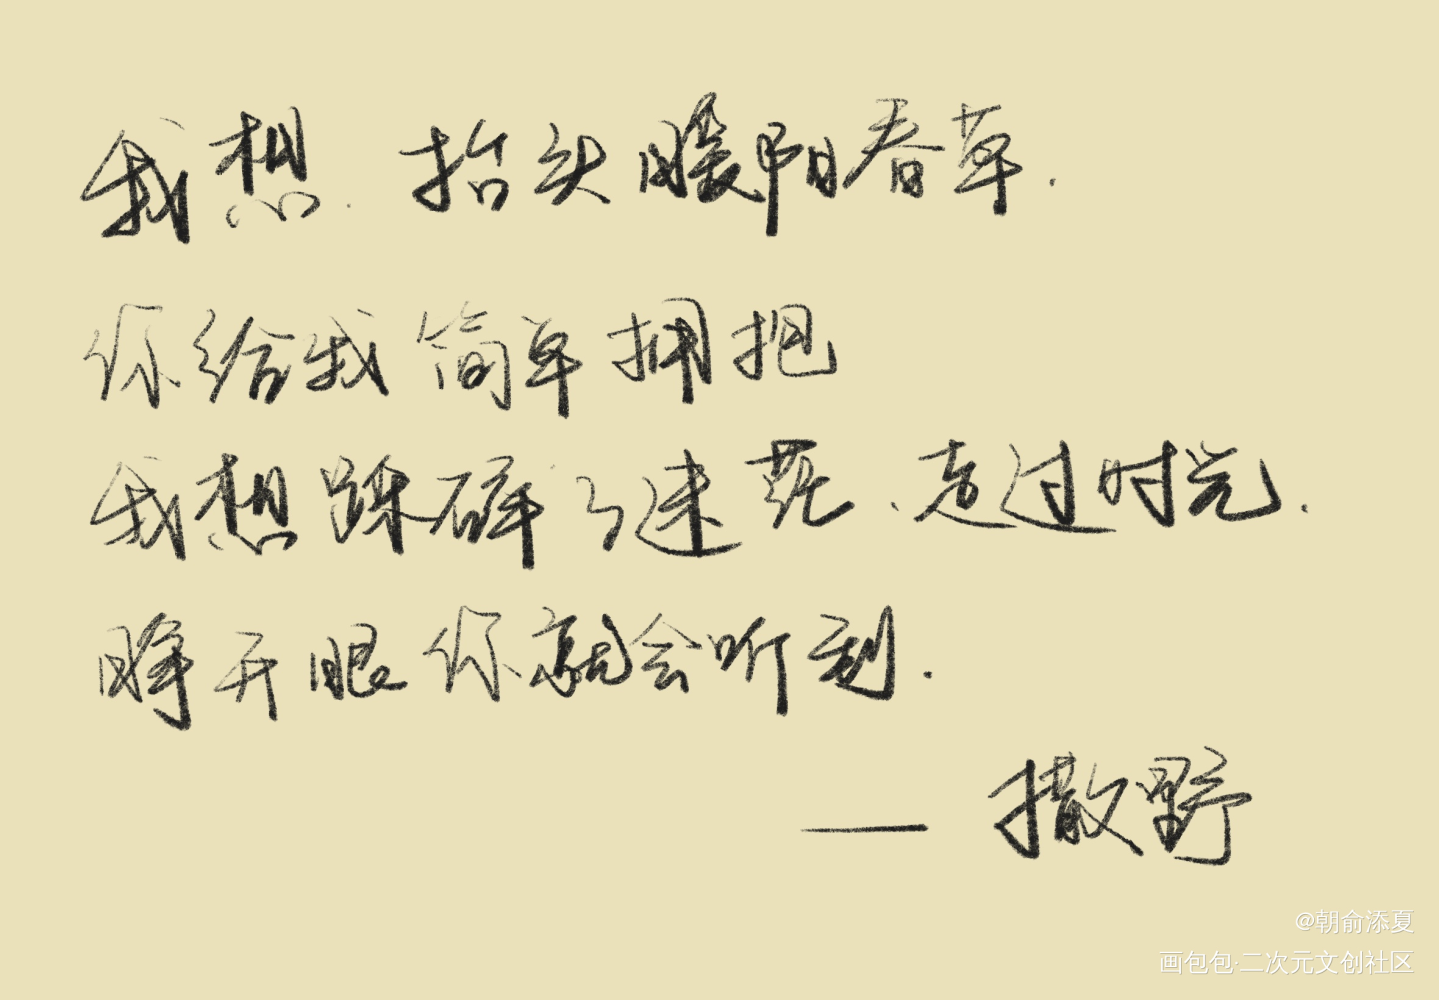 我想.抬头暖阳春草.
你给我简单拥抱
我想踩碎了迷茫、走过时光.
睁开眼你就会听到.
——撒野
@朝俞添夏
画包包·二次元文创社区